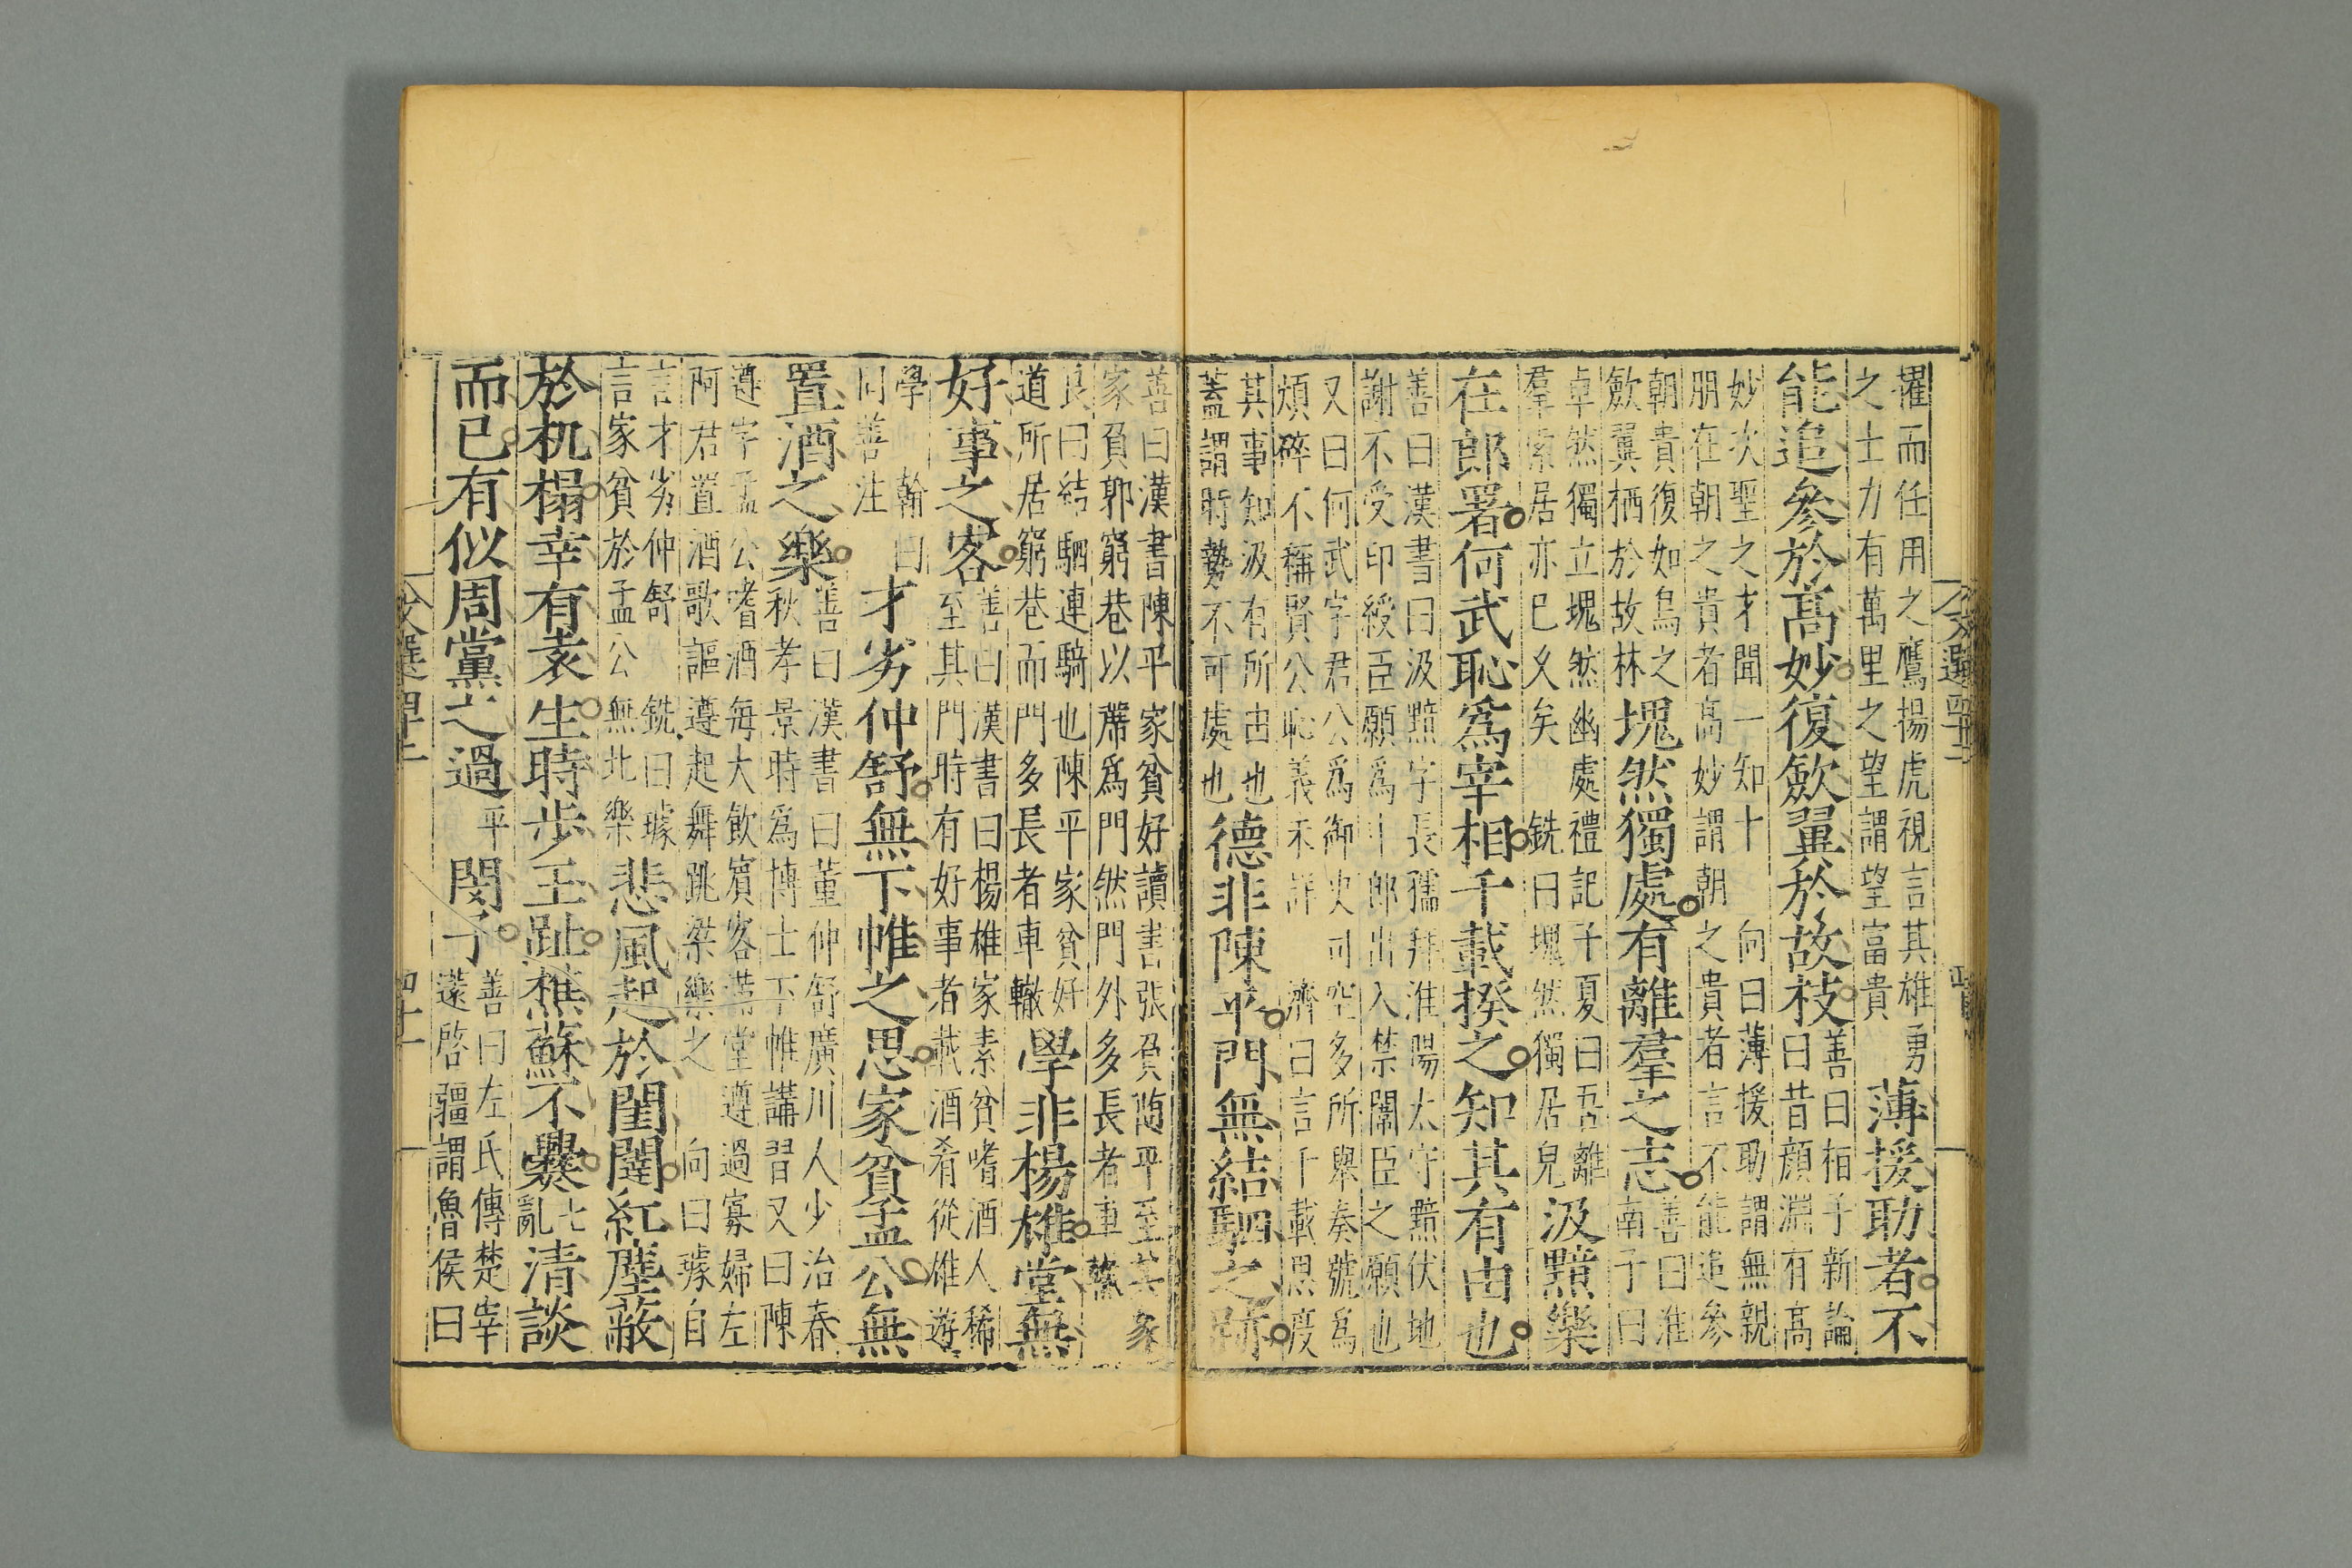 文選四十二
擢而任用之鷹揚虎視言其雄勇
之士力有萬里之望謂望富貴
薄援助者不
能追參於高妙復斂翼於故枝
善曰桓子新論
曰昔顔淵有高
妙次聖之才聞一知十 向曰薄援助謂無親
朋在朝之貴者高妙謂朝之貴者言不能追參
朝貴復如鳥之
歛翼栖於故林
塊然獨處有離羣之志
善曰淮
南子曰
卓然獨立塊然幽處禮記子夏曰吾離
羣索居亦已久矣 銑曰塊然獨居皃
汲黯樂
在郎署何武恥爲宰相千載揆之知其有由也
善曰漢書曰汲黯字長孺拜淮陽太守黯伏地
謝不受印綬臣願爲中郎出入禁闥臣之願也
又曰何武字君公爲御史司空多所舉奏號爲
煩碎不稱賢公恥義未詳 濟曰言千載思度
其事知汲有所由也
蓋謂時勢不可處也
德非陳平門無結駟之跡
善曰漢書陳平家貧好讀書張負随平至其家
家負郭窮巷以席爲門然門外多長者車轍
良曰結駟連騎也陳平家貧好
道所居窮巷而門多長者車轍
學非楊雄堂無
好事之客
善曰漢書曰楊雄家素貧嗜酒人稀
至其門時有好事者載酒肴從雄遊
學 翰曰
同善注
才劣仲舒無下帷之思家貧孟公無
置酒之樂
善曰漢書曰董仲舒廣川人少治春
秋孝景時爲博士下帷講習又曰陳
遵字孟公嗜酒每大飲賓客滿堂遵過寡婦左
阿君置酒歌謳遵起舞跳梁樂之 向曰璩自
言才劣仲舒 銑曰璩
言家貧於孟公無此樂
悲風起於閨闥紅塵蔽
於机榻幸有袁生時步玉趾樵蘇不爨
七
亂
清談
而已有似周黨之過
平
閔子
善曰左氏傳楚宰
薳啓疆謂魯侯曰
文選四十二